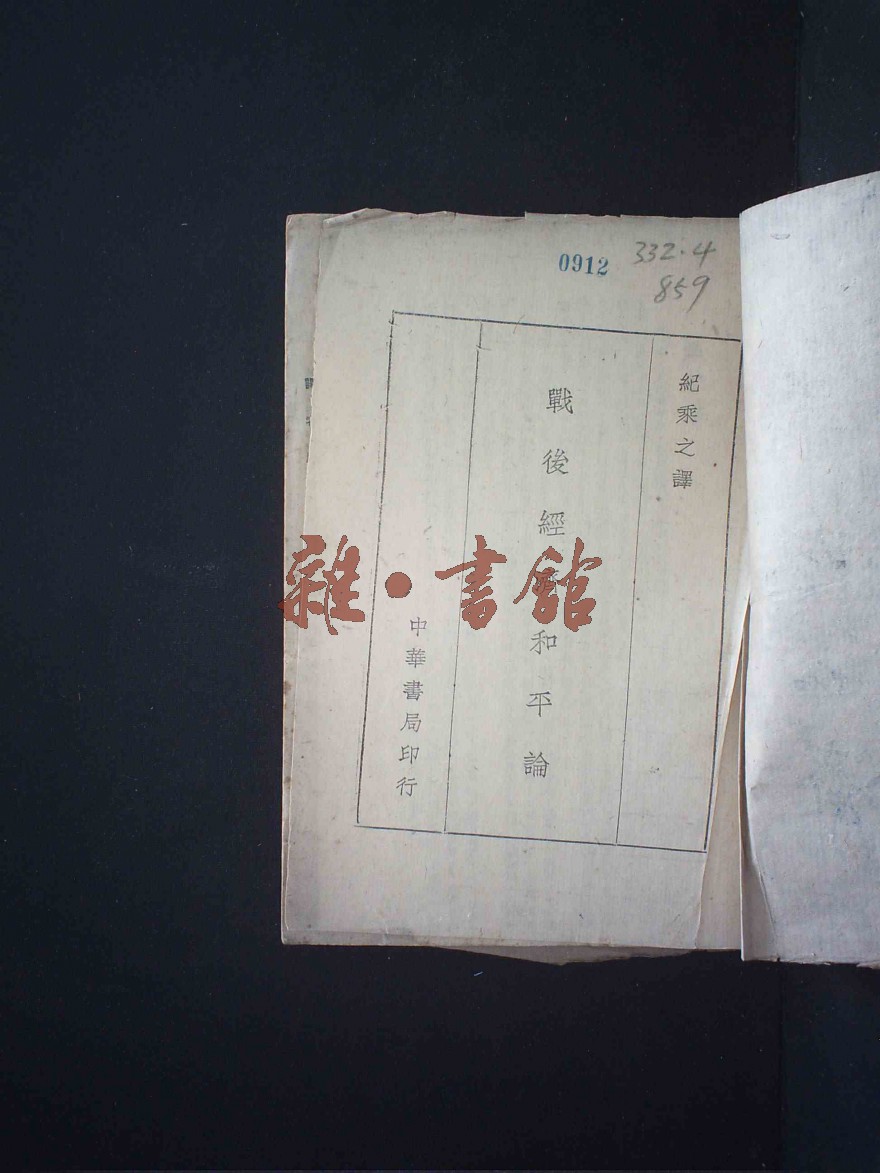 0912
332.4
859
紀乘之譯
戰後經濟和平論
中華書局印行
雜·書館